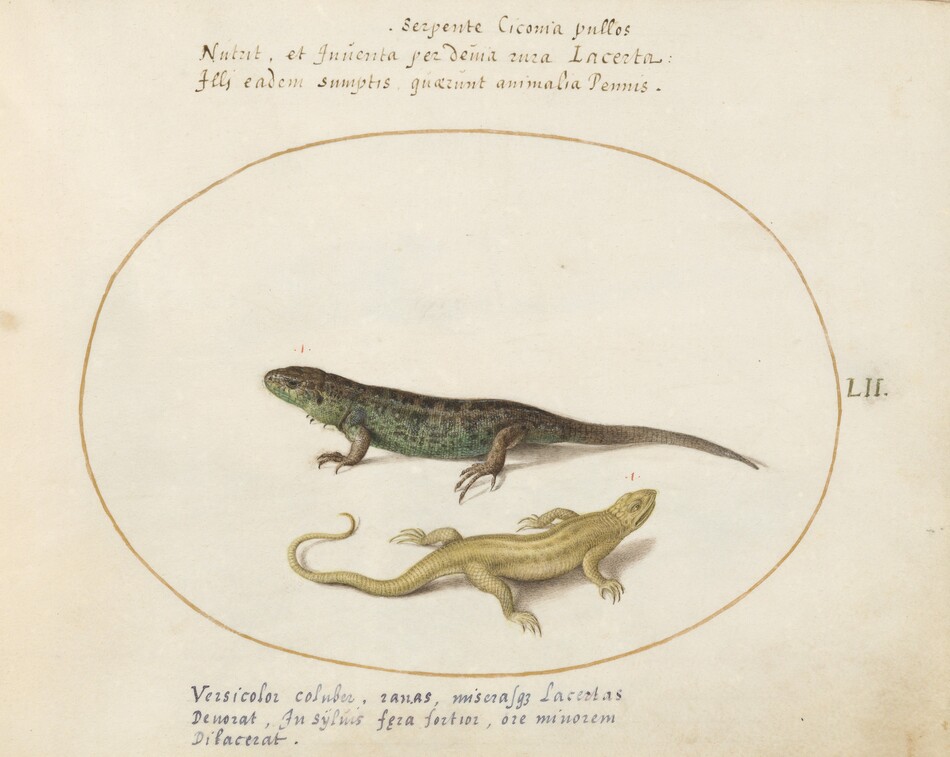 . Serpente Ciconia pullos
Nutrit, et Inūenta per deūia rura Lacerta:
Illj eadem sumptis quærunt animalia Pennis.
.1.
LII.
.1.
Versicolor coluber, ranas, miserasqȝ Lacertas
Deuorat, In sÿluis fęra fortior, ore minorem
Dilacerat.